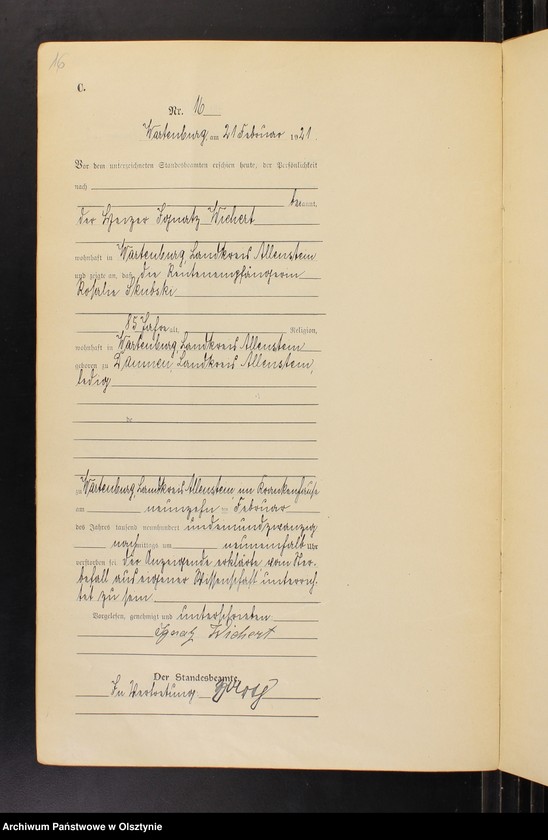 16
C.
Nr. 16
Wartenburg, am 21 Februar 1921.
Vor dem unterzeichneten Standesbeamten erschien heute, der Persönlichkeit
nach
bekannt,
der Ignatz Wichert
wohnhaft in Wartenburg, Landkreis Allenstein
und zeigte an, daß die Rentenempfängerin
Rosalie Skubski
85 Jahre alt, Religion,
wohnhaft in Wartenburg, Landkreis Allenstein
geboren zu Landkreis Allenstein,
ledig
de
zu Wartenburg, Landkreis Allenstein, im Krankenhause
am neunzehn ten Februar
des Jahres tausend neunhundert undeinundzwanzig
nachmittags um neuneinhalb Uhr
verstorben sei. Der Anzeigende erklärte vom Ster-
befall aus eigener Wissenschaft unterrich-
tet zu sein.
Vorgelesen, genehmigt und unterschrieben
Ignatz Wichert
Der Standesbeamte.
In Vertretung.
Archiwum Państwowe w Olsztynie